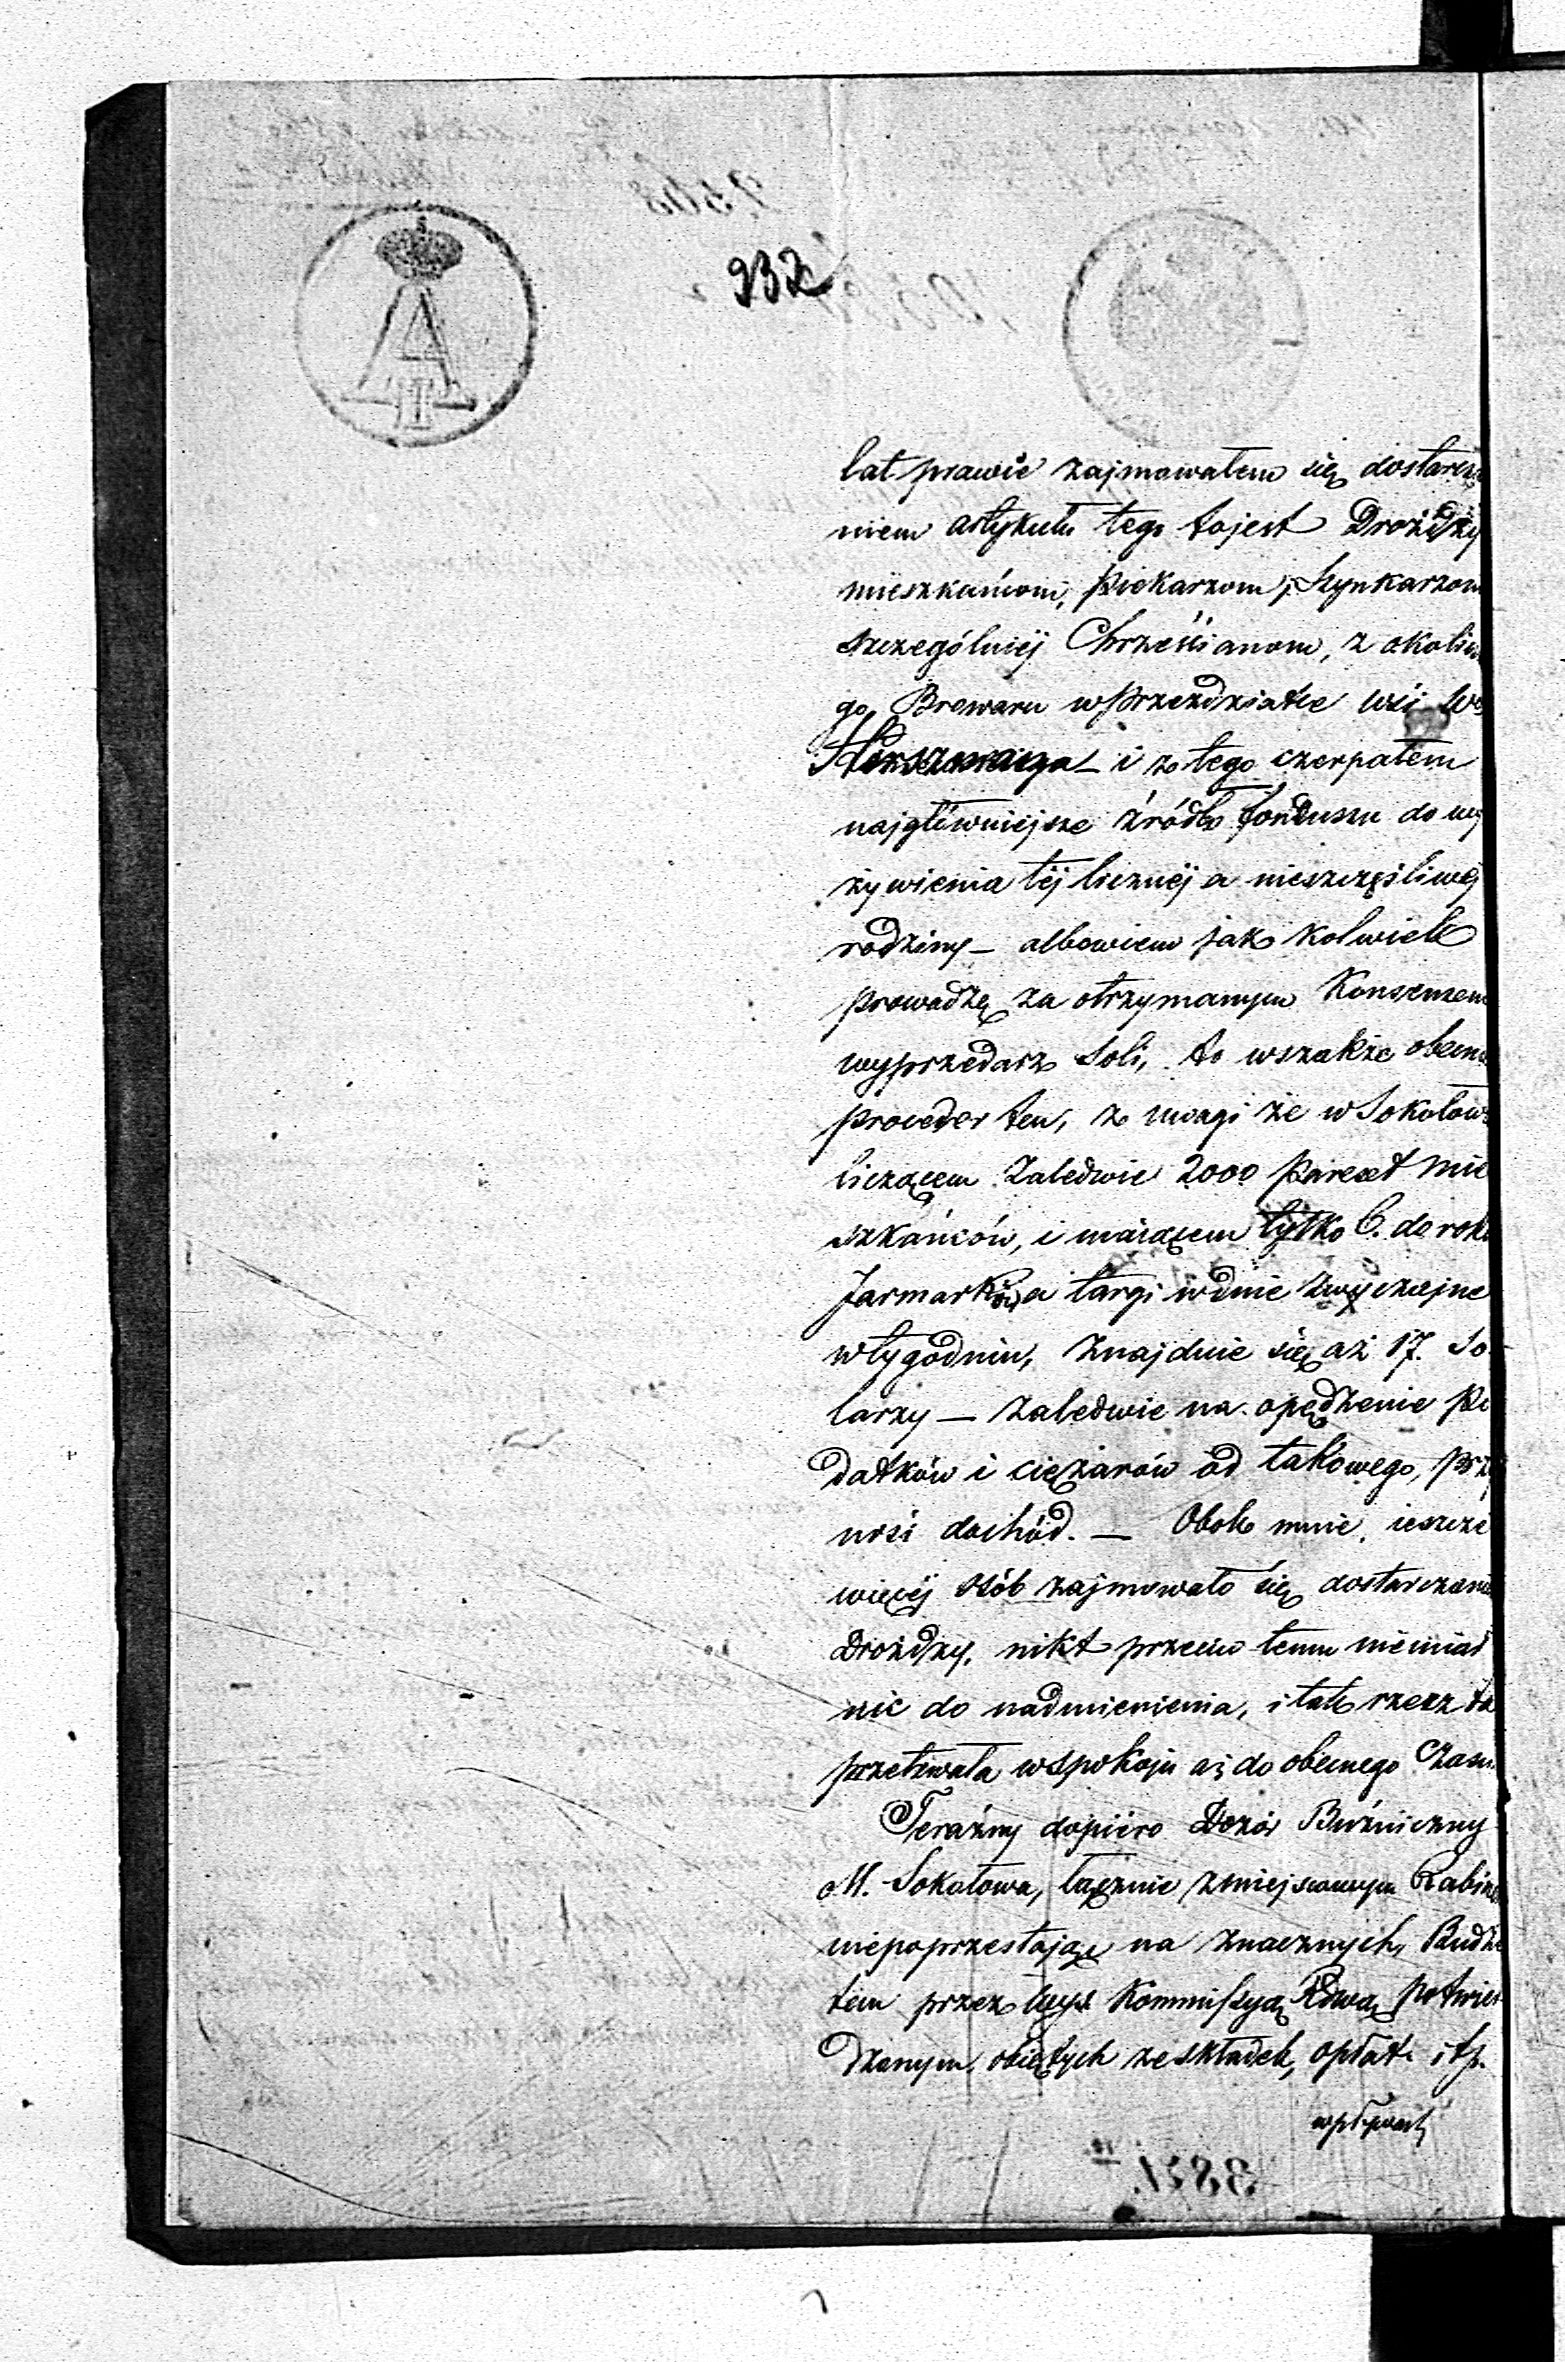 232
A II
lat prawie zajmowałem się dostarcza
niem artykułu tego tojest Drożdży
mieszkańcom, piekarzom, Szynkarzom
szczególniej Chrześcianom, z okoliczne
go Browaru w Przeździatce wsi
i z tego czerpałem
najgłówniejsze źródło fonduszu do wy
żywienia téj licznéj a nieszczęśliwej
rodziny — albowiem jako kolwiek
prowadzę za otrzymanym Konsensem
wyprzedarz Soli, to wszakże obecnie
proceder ten, z uwagi że w Sokołowie
liczącem zaledwie 2000 pareset mie
szkańców, i maiącem tylko 6. do roku
Jarmarków a targi w dnie zwyczajne
w tygodniu, znajduie się aż 17. So
larzy — zaledwie na opędzenie po
datków i ciężarów od takowego, przy
nosi dochód. — Obok mnie, ieszcze
więcéj osób zajmowało się dostarczaniem
Drożdży, nikt przeciw temu niemiał
nic do nadmienienia, i tak rzecz ta
przetrwała w spokoju aż do obecnego Czasu.
Teraźny dopiéro Dozór Bużniczny
M. Sokołowa, łącznie z miejscowym Rabinem
niepoprzestając na znacznych, Budże
tem przez Wys. Kommissyą Rdową potwier
dzonym, obiętych ze składek, opłat i t.p.
wpływach
3821.